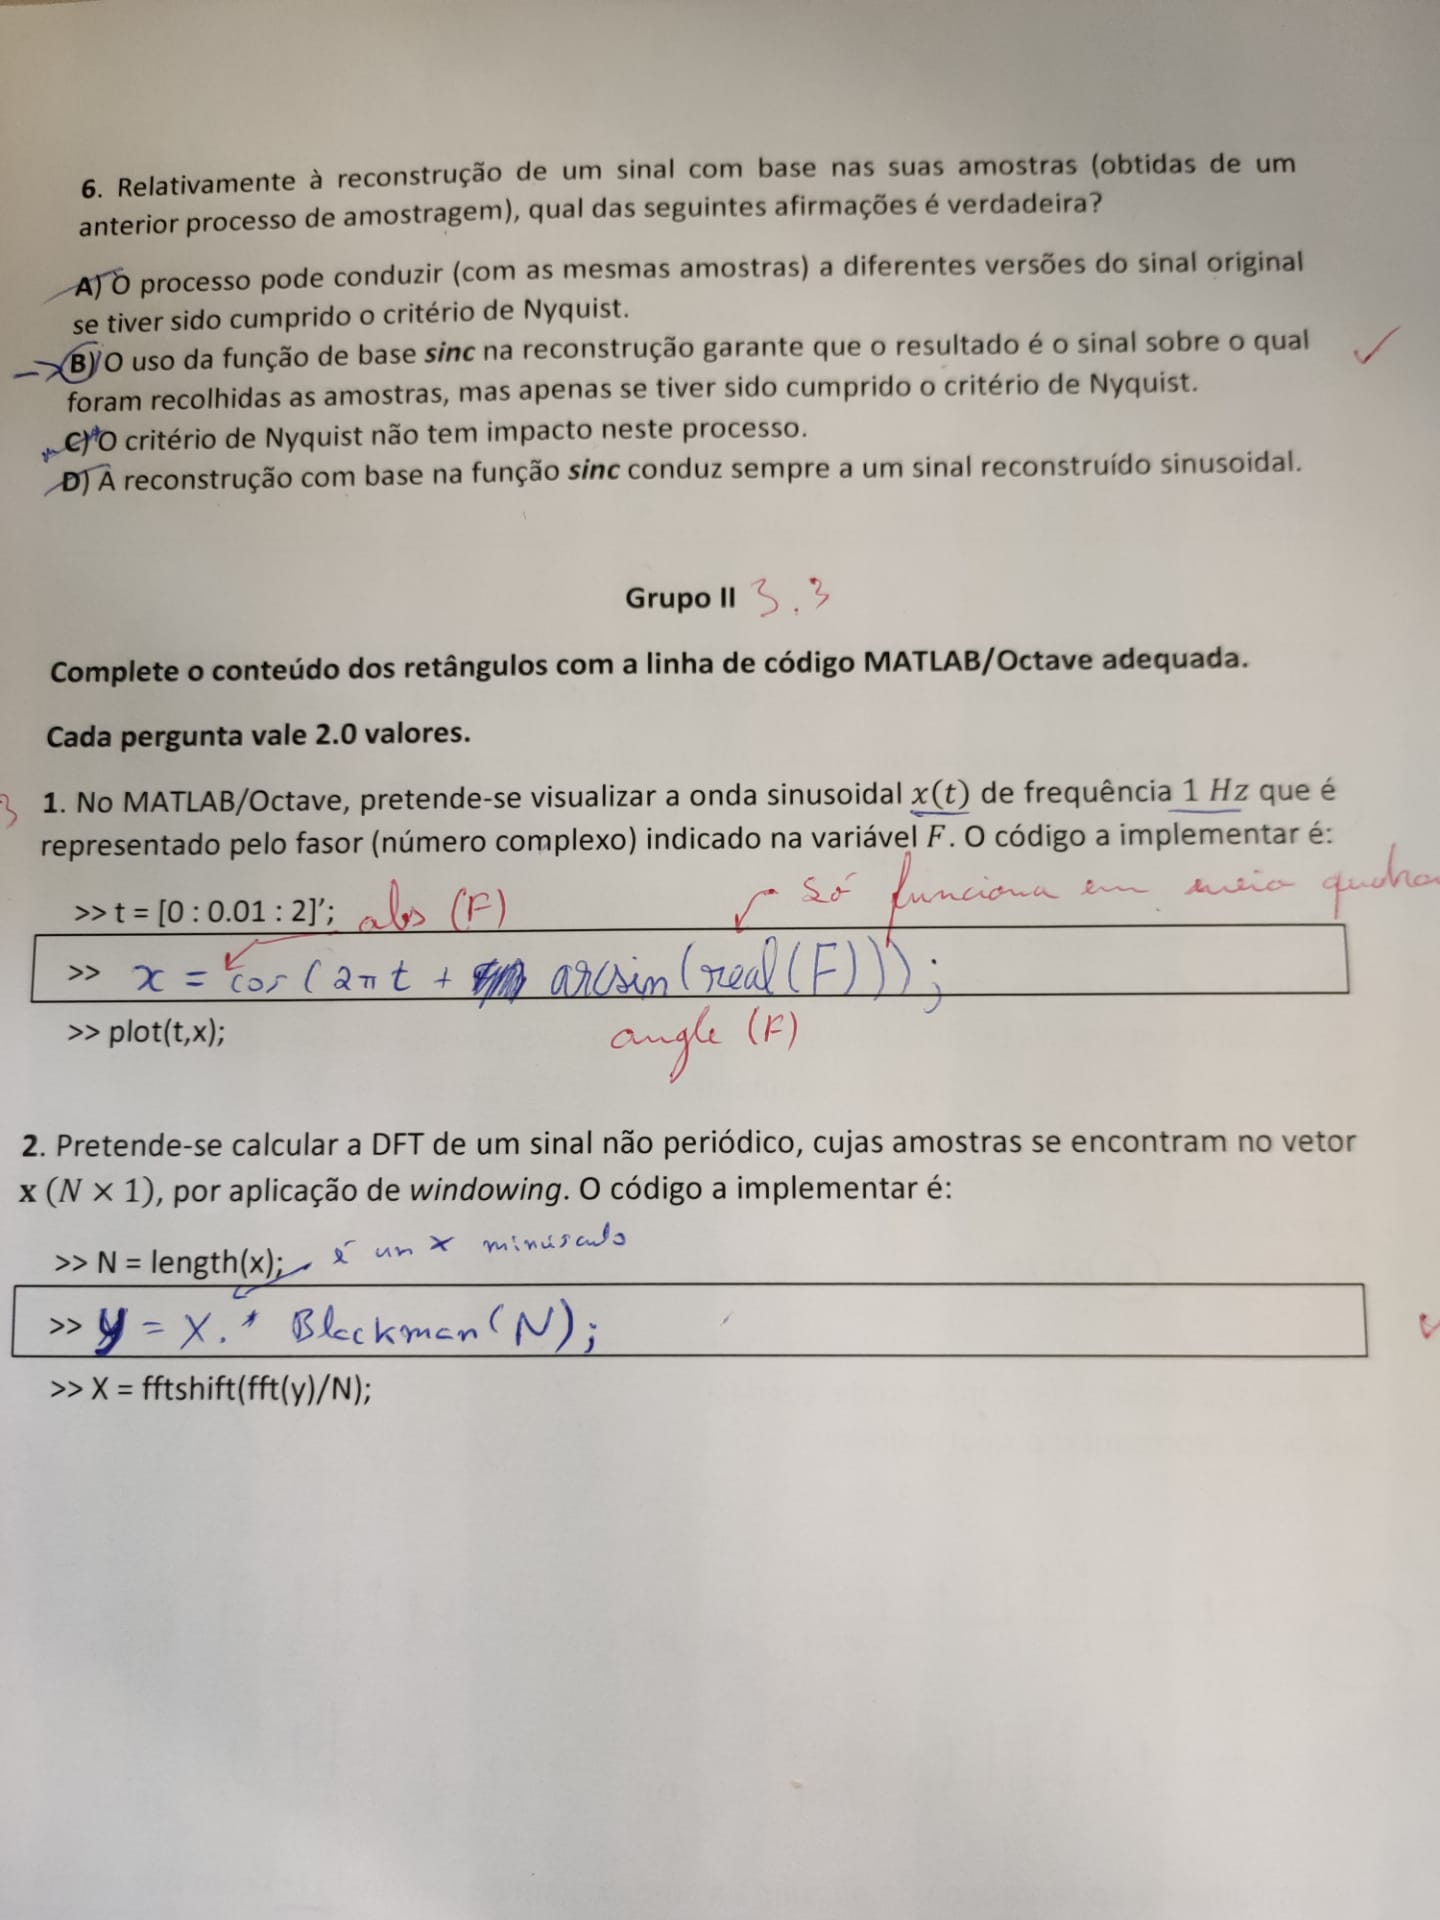 6. Relativamente à reconstrução de um sinal com base nas suas amostras (obtidas de um
anterior processo de amostragem), qual das seguintes afirmações é verdadeira?
A) O processo pode conduzir (com as mesmas amostras) a diferentes versões do sinal original
se tiver sido cumprido o critério de Nyquist.
B) O uso da função de base sinc na reconstrução garante que o resultado é o sinal sobre o qual
foram recolhidas as amostras, mas apenas se tiver sido cumprido o critério de Nyquist.
C) O critério de Nyquist não tem impacto neste processo.
D) A reconstrução com base na função sinc conduz sempre a um sinal reconstruído sinusoidal.
Grupo II 3.3
Complete o conteúdo dos retângulos com a linha de código MATLAB/Octave adequada.
Cada pergunta vale 2.0 valores.
1. No MATLAB/Octave, pretende-se visualizar a onda sinusoidal x(t) de frequência 1 Hz que é
representado pelo fasor (número complexo) indicado na variável F. O código a implementar é:
só funciona em meio
>> t = [0 : 0.01 : 2]'; abs (F)
>> x = cos(2πt + arcsin(real(F)));
>> plot(t,x); angle (F)
2. Pretende-se calcular a DFT de um sinal não periódico, cujas amostras se encontram no vetor
x (N × 1), por aplicação de windowing. O código a implementar é:
>> N = length(x); é um x minúsculo
>> y = x.* Blackman(N);
>> X = fftshift(fft(y)/N);